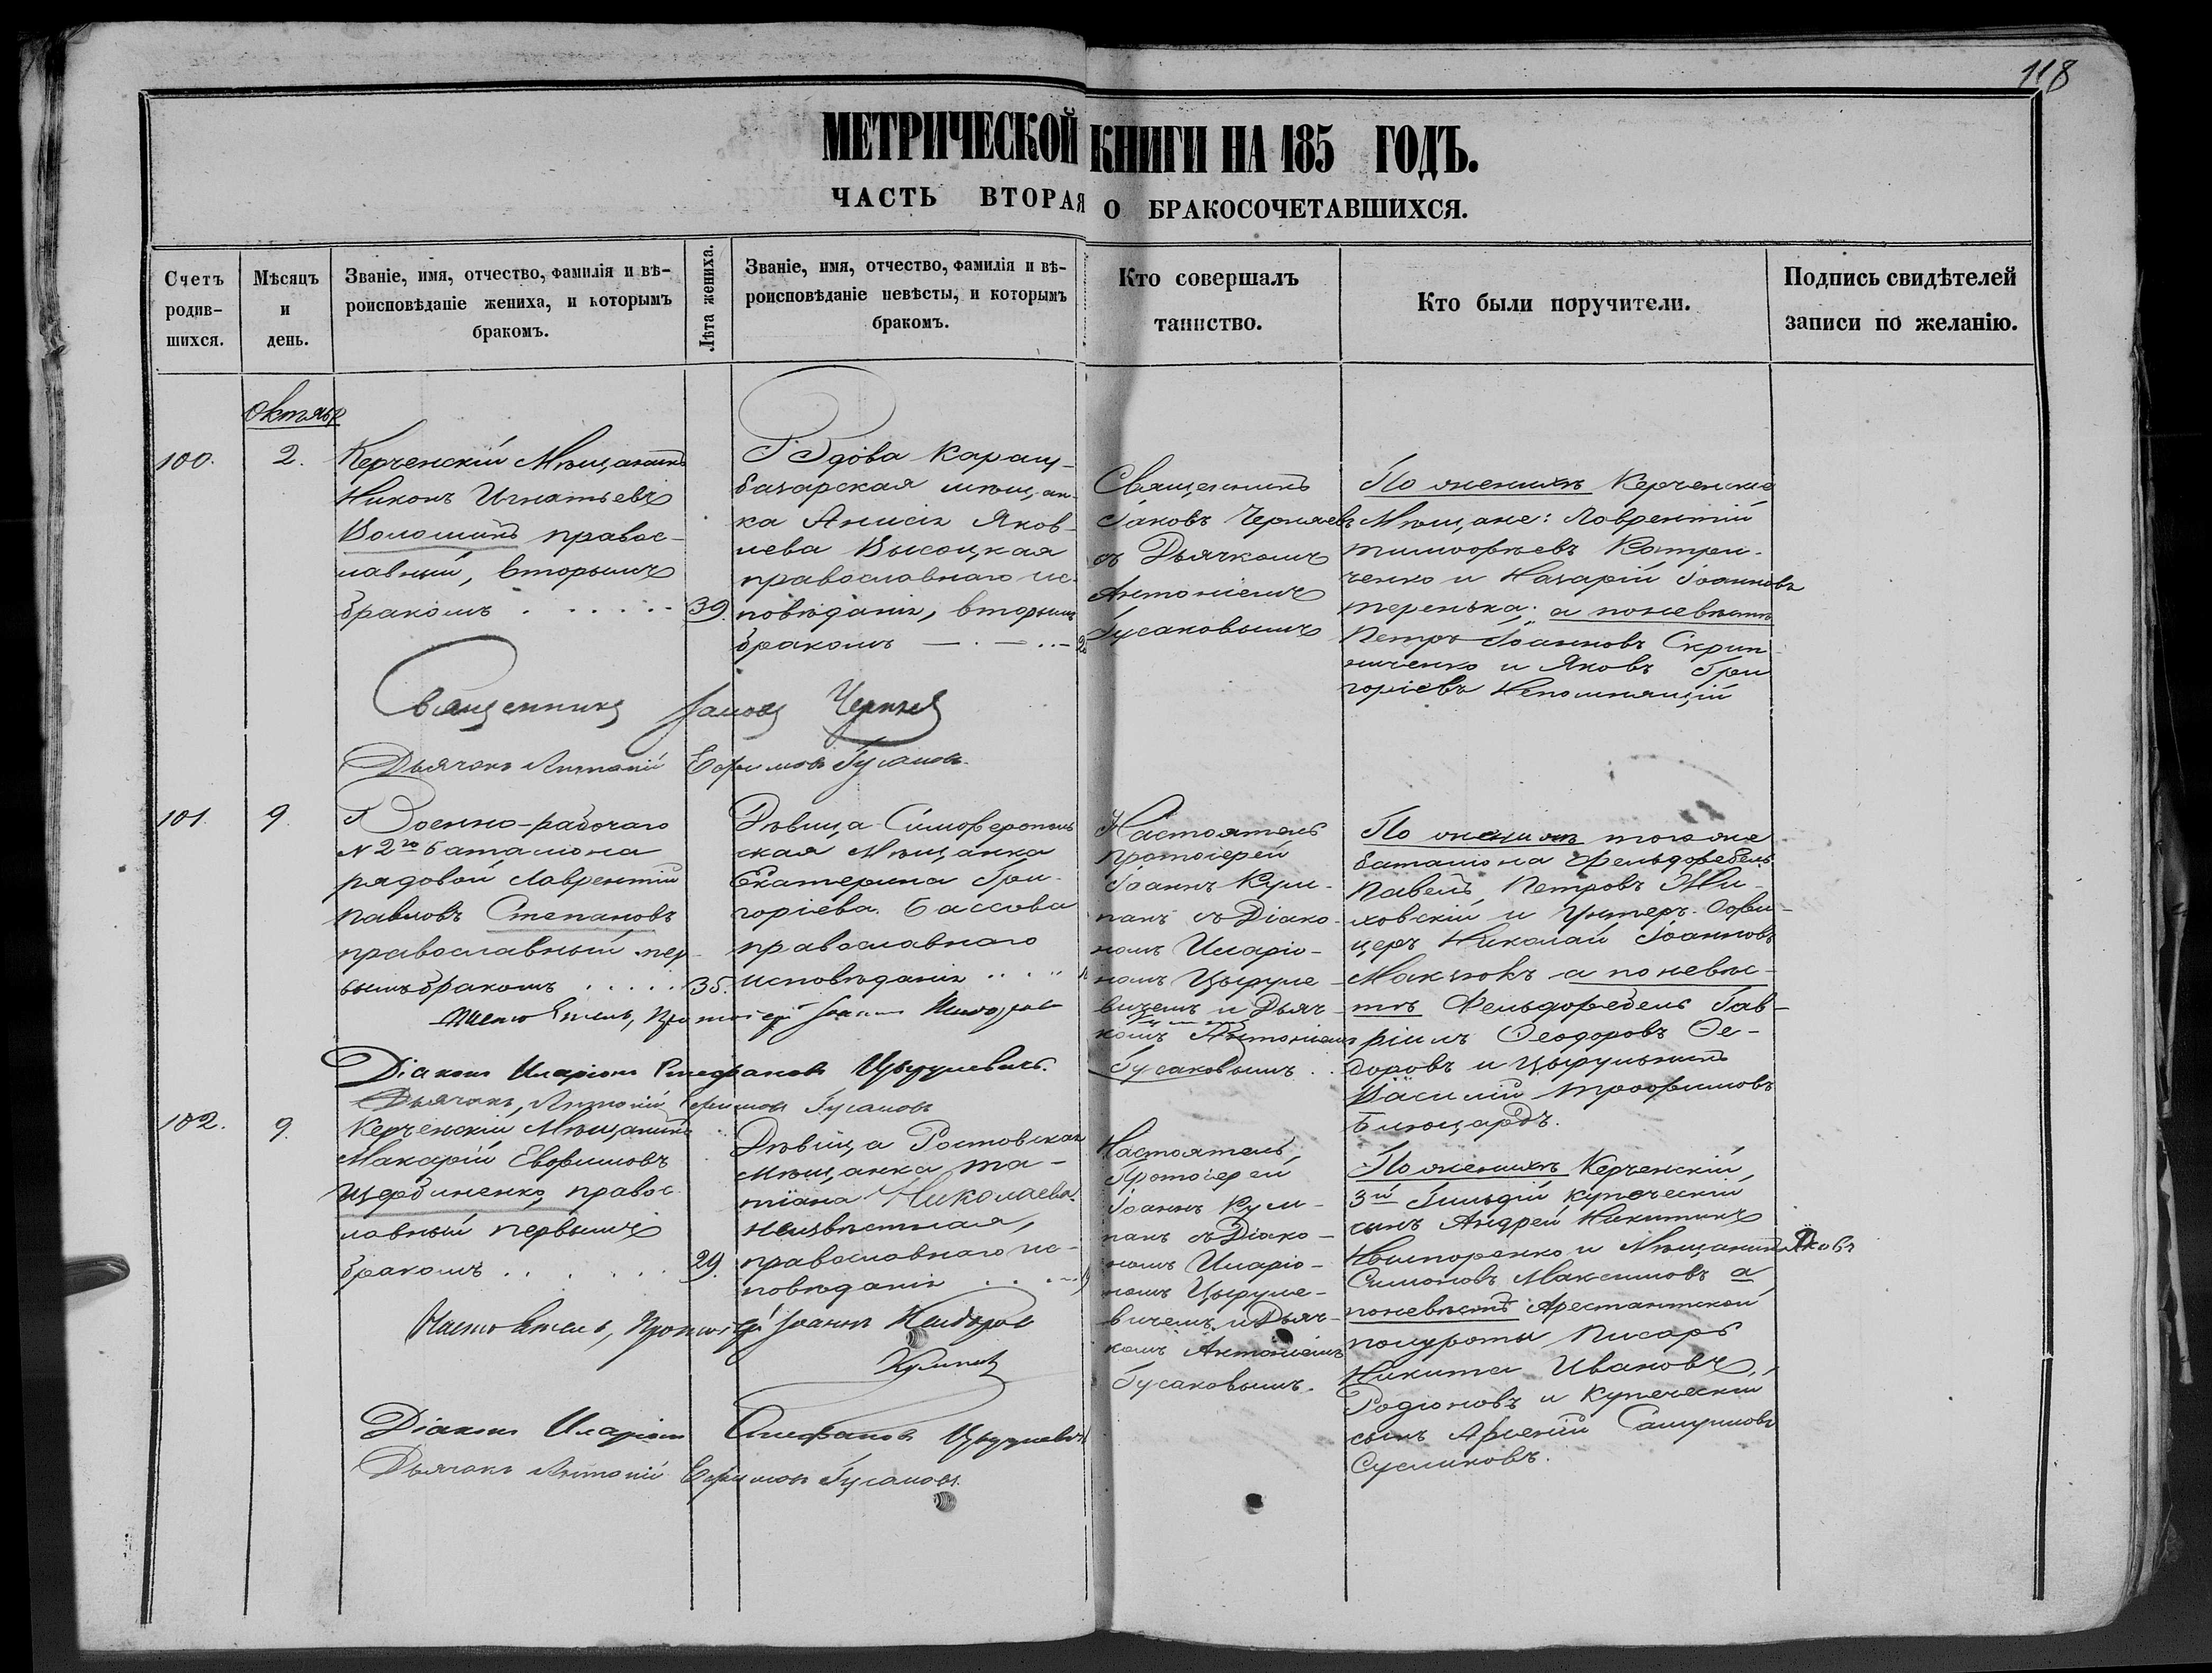 118
МЕТРИЧЕСКОЙ КНИГИ НА 185 ГОДЪ.
ЧАСТЬ ВТОРАЯ О БРАКОСОЧЕТАВШИХСЯ.
Счетъ
родив-
шихся.
Мѣсяцъ
и
день.
Званіе, имя, отчество, фамилія и вѣ-
роисповѣданіе жениха, и которымъ
бракомъ.
Лѣта жениха.
Званіе, имя, отчество, фамилія и вѣ-
роисповѣданіе невѣсты, и которымъ
бракомъ.
Кто совершалъ
таинство.
Кто были поручители.
Подпись свидѣтелей
записи по желанію.
100.
Октябр
2.
Керченскій Мѣщанинъ
Никонъ Игнатьевъ
Волошинъ правос-
лавный, вторымъ
бракомъ . . . . . .
39.
Вдова Карасу-
базарская мѣщан-
ка Анисія Яков-
лева Высоцкая
православнаго ис-
повѣданія, вторымъ
бракомъ
Священникъ
Іаковъ Черняевъ
съ Дьячкомъ
Антоніемъ
Гусаковымъ
По женихѣ Керченскіе
Мѣщане: Лаврентій
Тимофѣевъ
ченко и Назарій Іоанновъ
а по невѣстѣ
Петръ Іоанновъ Скрип-
ниченко и Яковъ Гри
горіевъ Непомнящій
Священникъ Іаковъ Черняевъ
Дьячокъ Антоній Ефимовъ Гусаковъ.
101.
9.
Военно-рабочаго
№ 2го баталіона
рядовой Лаврентій
Павловъ Степановъ
православный пер-
вымъ бракомъ . . . . .
35.
Дѣвица Симферополь
ская Мѣщанка
Екатерина Гри-
горіева Бассова
православнаго
исповѣданія
Настоятель
Протоіерей
Іоаннъ Кум-
панъ съ Діако-
номъ Иларіо-
номъ Цыруле-
вичемъ и Дьяч-
комъ Антоніемъ
Гусаковымъ . .
По женихѣ того же
баталіона Фельдфебель
Павелъ Петровъ
ховскій и Унтеръ-Офи-
церъ Николай Іоанновъ
а по невѣс-
тѣ Фельдфебель Гав-
ріилъ Ѳеодоровъ Ѳе-
доровъ и Цырульникъ
Василій Трофимовъ
Настоятель, Протоіерей Іоаннъ
Діаконъ Иларіонъ Стефановъ Цырулевичъ.
Дьячокъ, Антоній Ефимовъ Гусаковъ
102.
9.
Керченскій Мѣщанинъ
Макарій Евфимовъ
Щербиненко, правос
лавный первымъ
бракомъ . . . . . .
29.
Дѣвица Ростовская
Мѣщанка Та-
тіана Николаева
Неизвѣстная,
православнаго ис-
повѣданія
Настоятель,
Протоіерей
Іоаннъ Кум-
панъ съ Діако-
номъ Иларіо-
номъ Цыруле-
вичемъ и Дьяч-
комъ Антоніемъ
Гусаковымъ.
По женихѣ Керченскій,
3й Гильдіи купеческій
сынъ Андрей Никитинъ
и Мѣщанинъ Яковъ
Симоновъ Максимовъ а
по невѣстѣ Арестантской
полуроты Писарь
Никита Ивановъ,
Родіоновъ и Купеческій
сынъ Арсеній
Сусликовъ.
Настоятель, Протоіерей Іоаннъ
Кумпанъ
Діаконъ Иларіонъ Стефановъ Цырулевичъ
Дьячокъ Антоній Ефимовъ Гусаковъ.